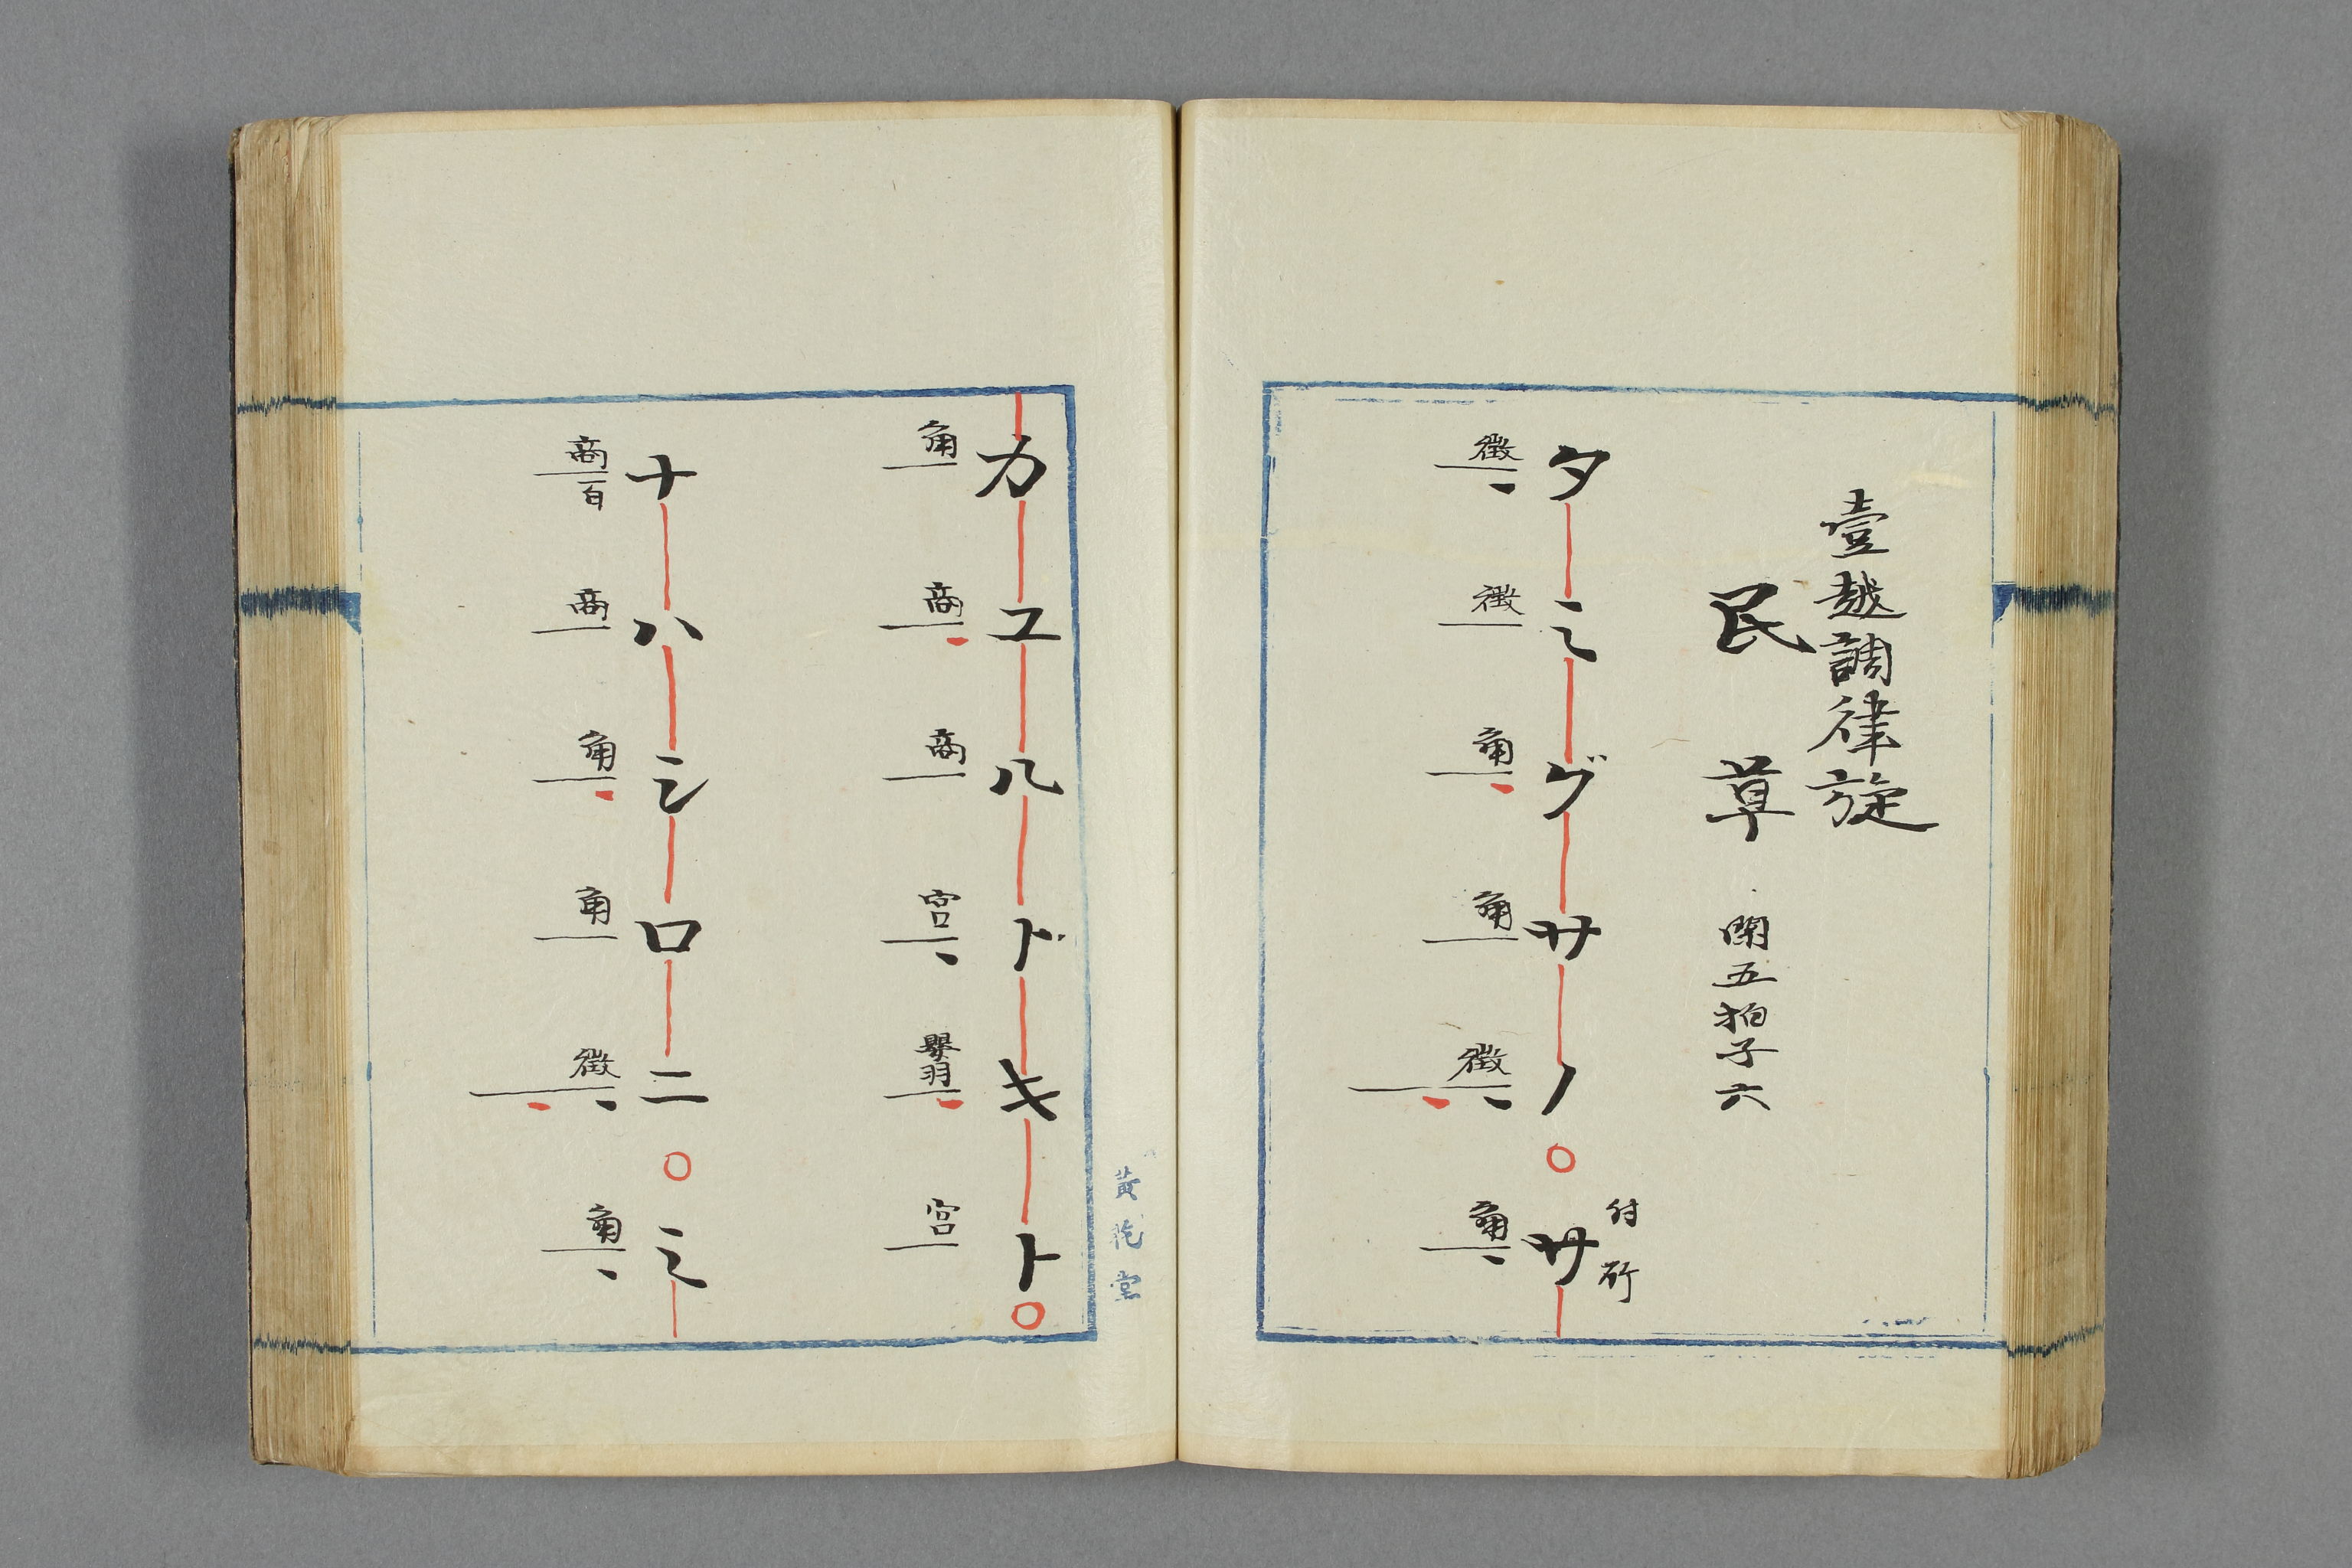 壹越調律旋
民草 閑五拍子六
タミグサノ○サ
付所
徴徴角角徴角
カユルドキト○
角商商宮嬰羽宮
ナハシロニ○ミ
商百商角角徴角